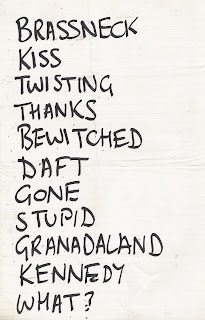 BRASSNECK
KISS
TWISTING
THANKS
BEWITCHED
DAFT
GONE
STUPID
GRANADALAND
KENNEDY
WHAT?